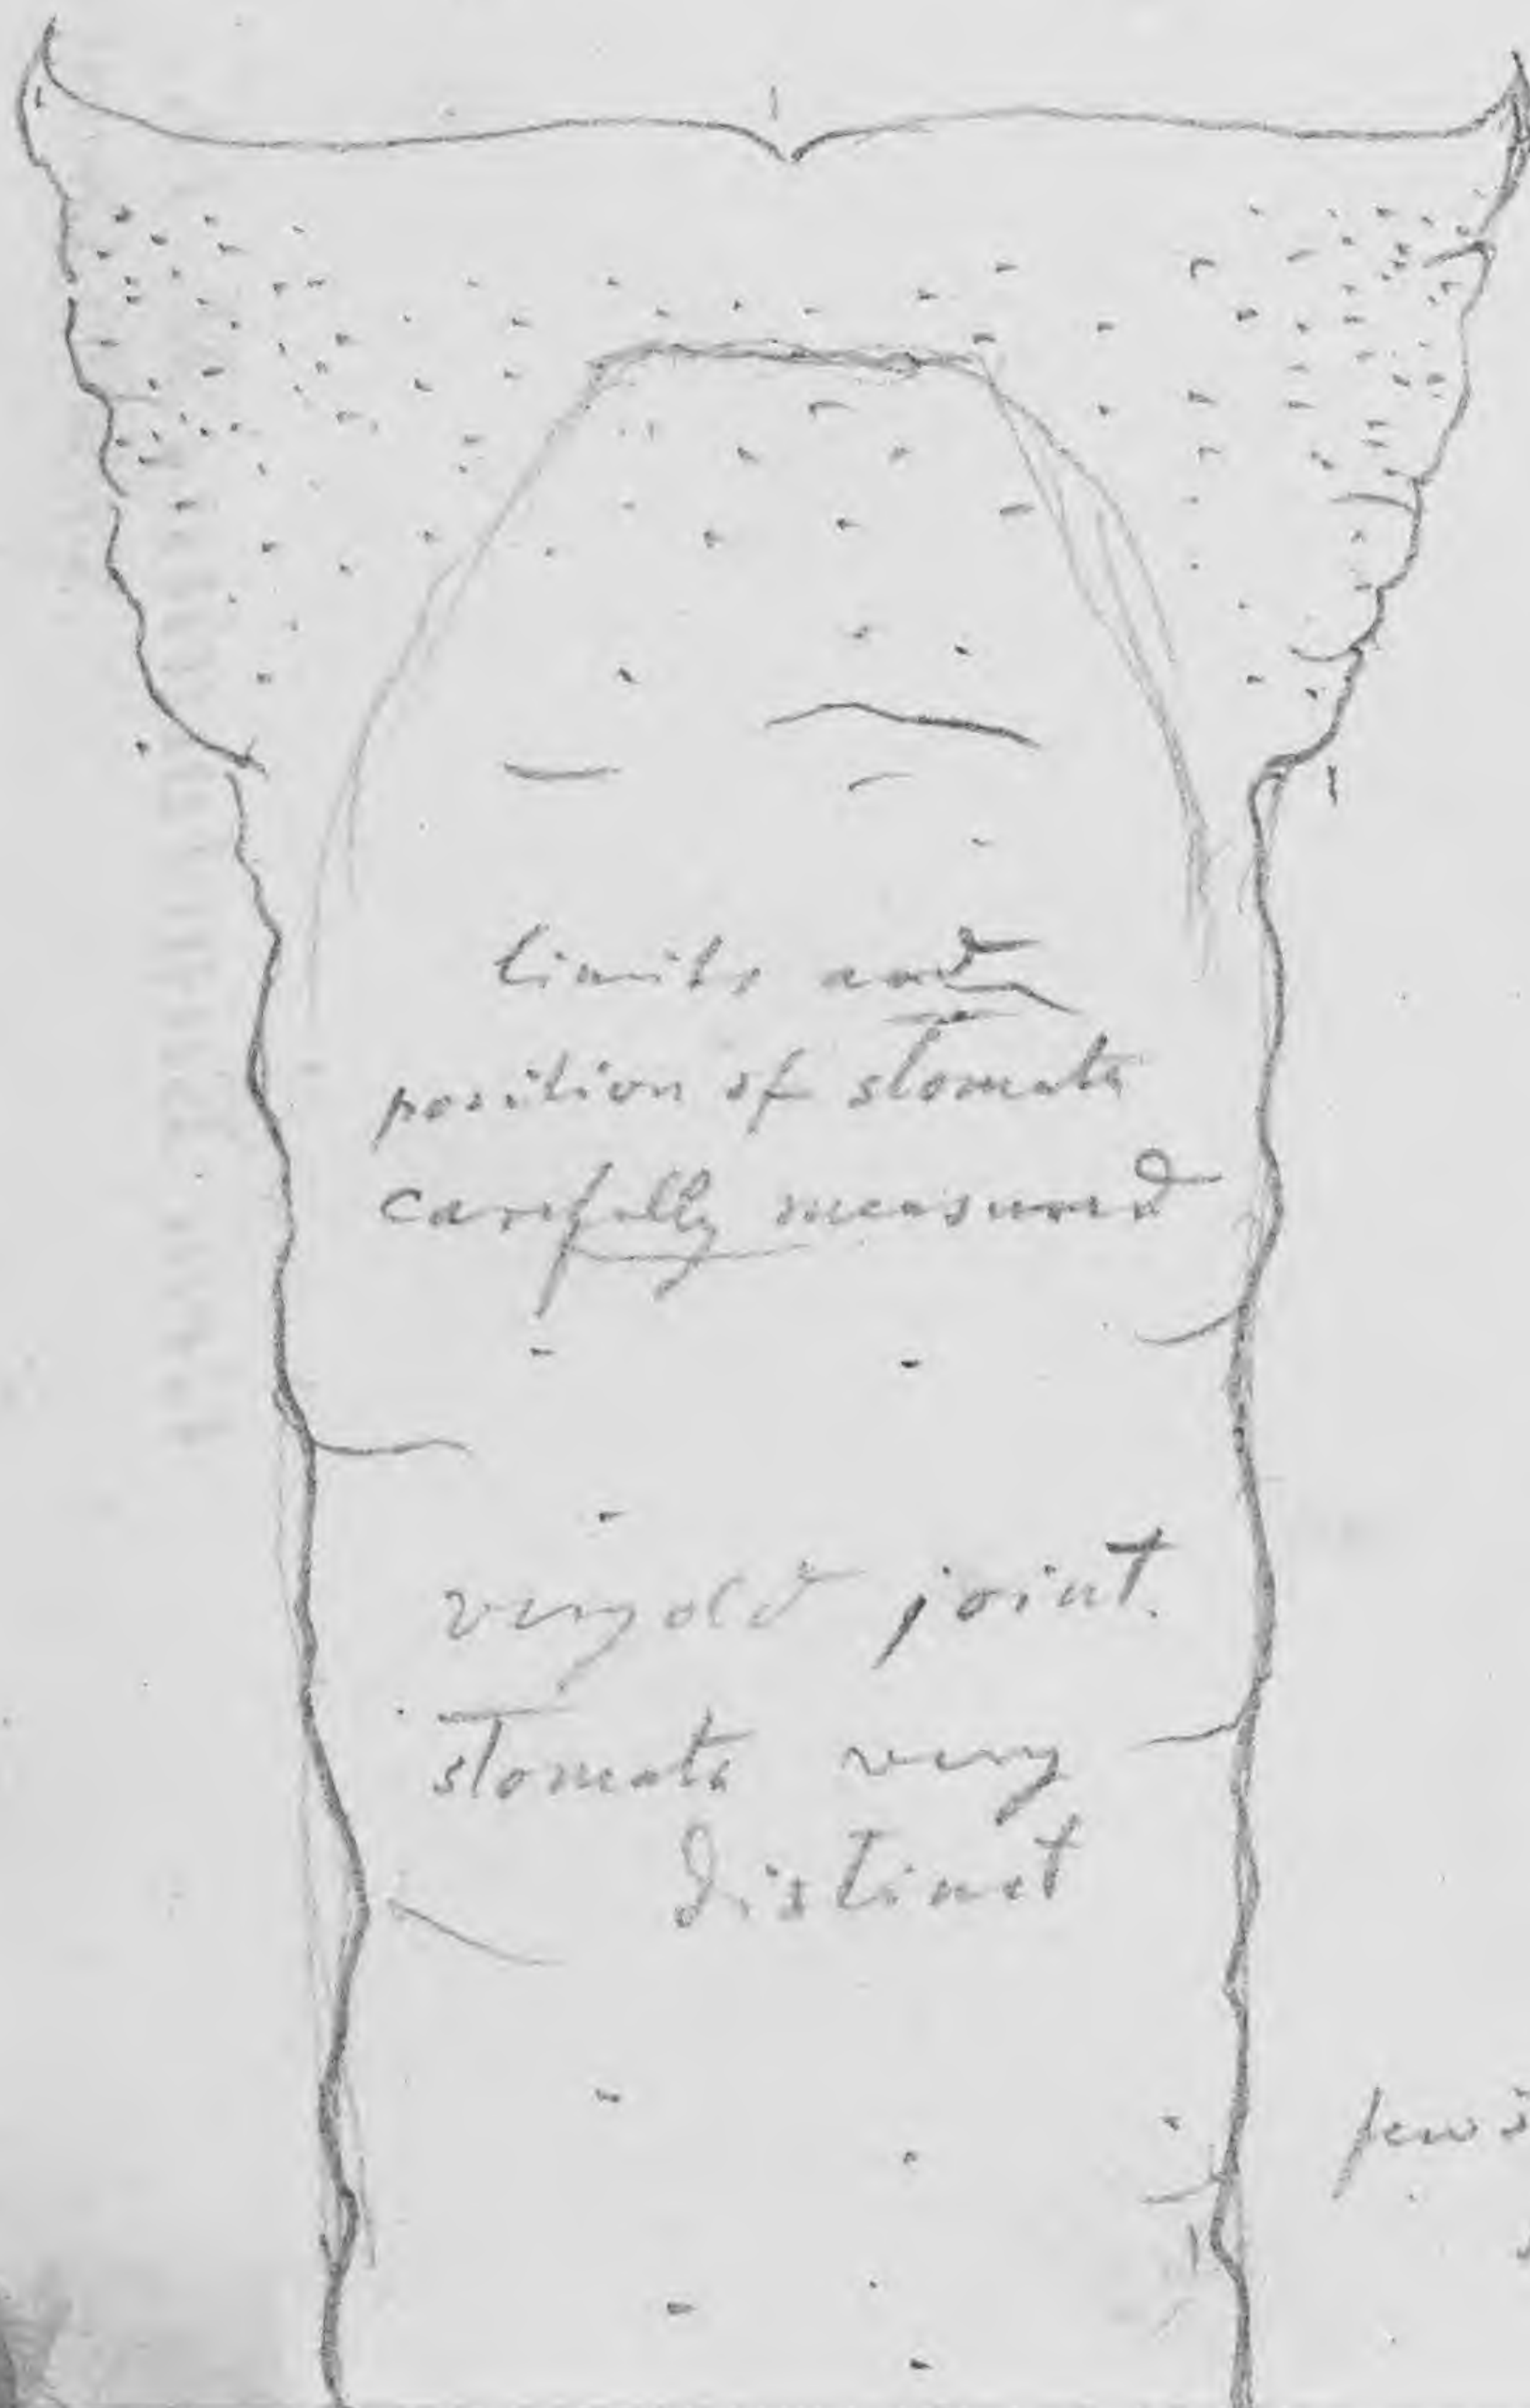 limits and
position of stomata
carefully measured
very old joint.
stomata very
distinct
few